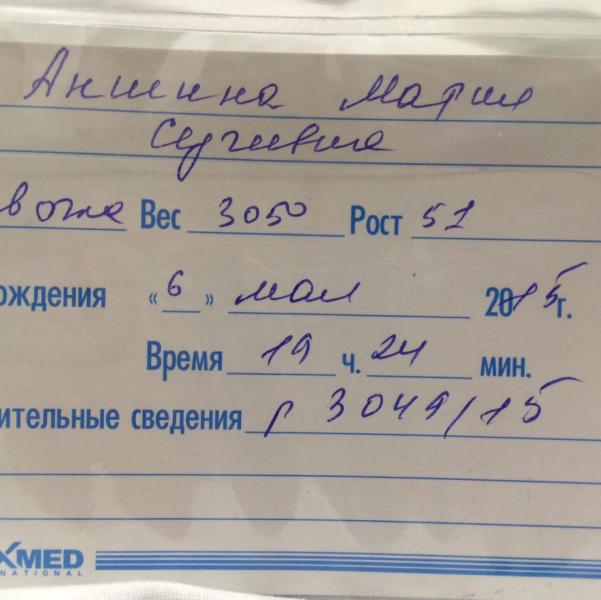 Аншина Мария
Сергеевна
Вес 3050 Рост 51
ождения «6» мая 2015г.
Время 19 ч. 24 мин.
ительные сведения р 3049/15
XMED
NATIONAL